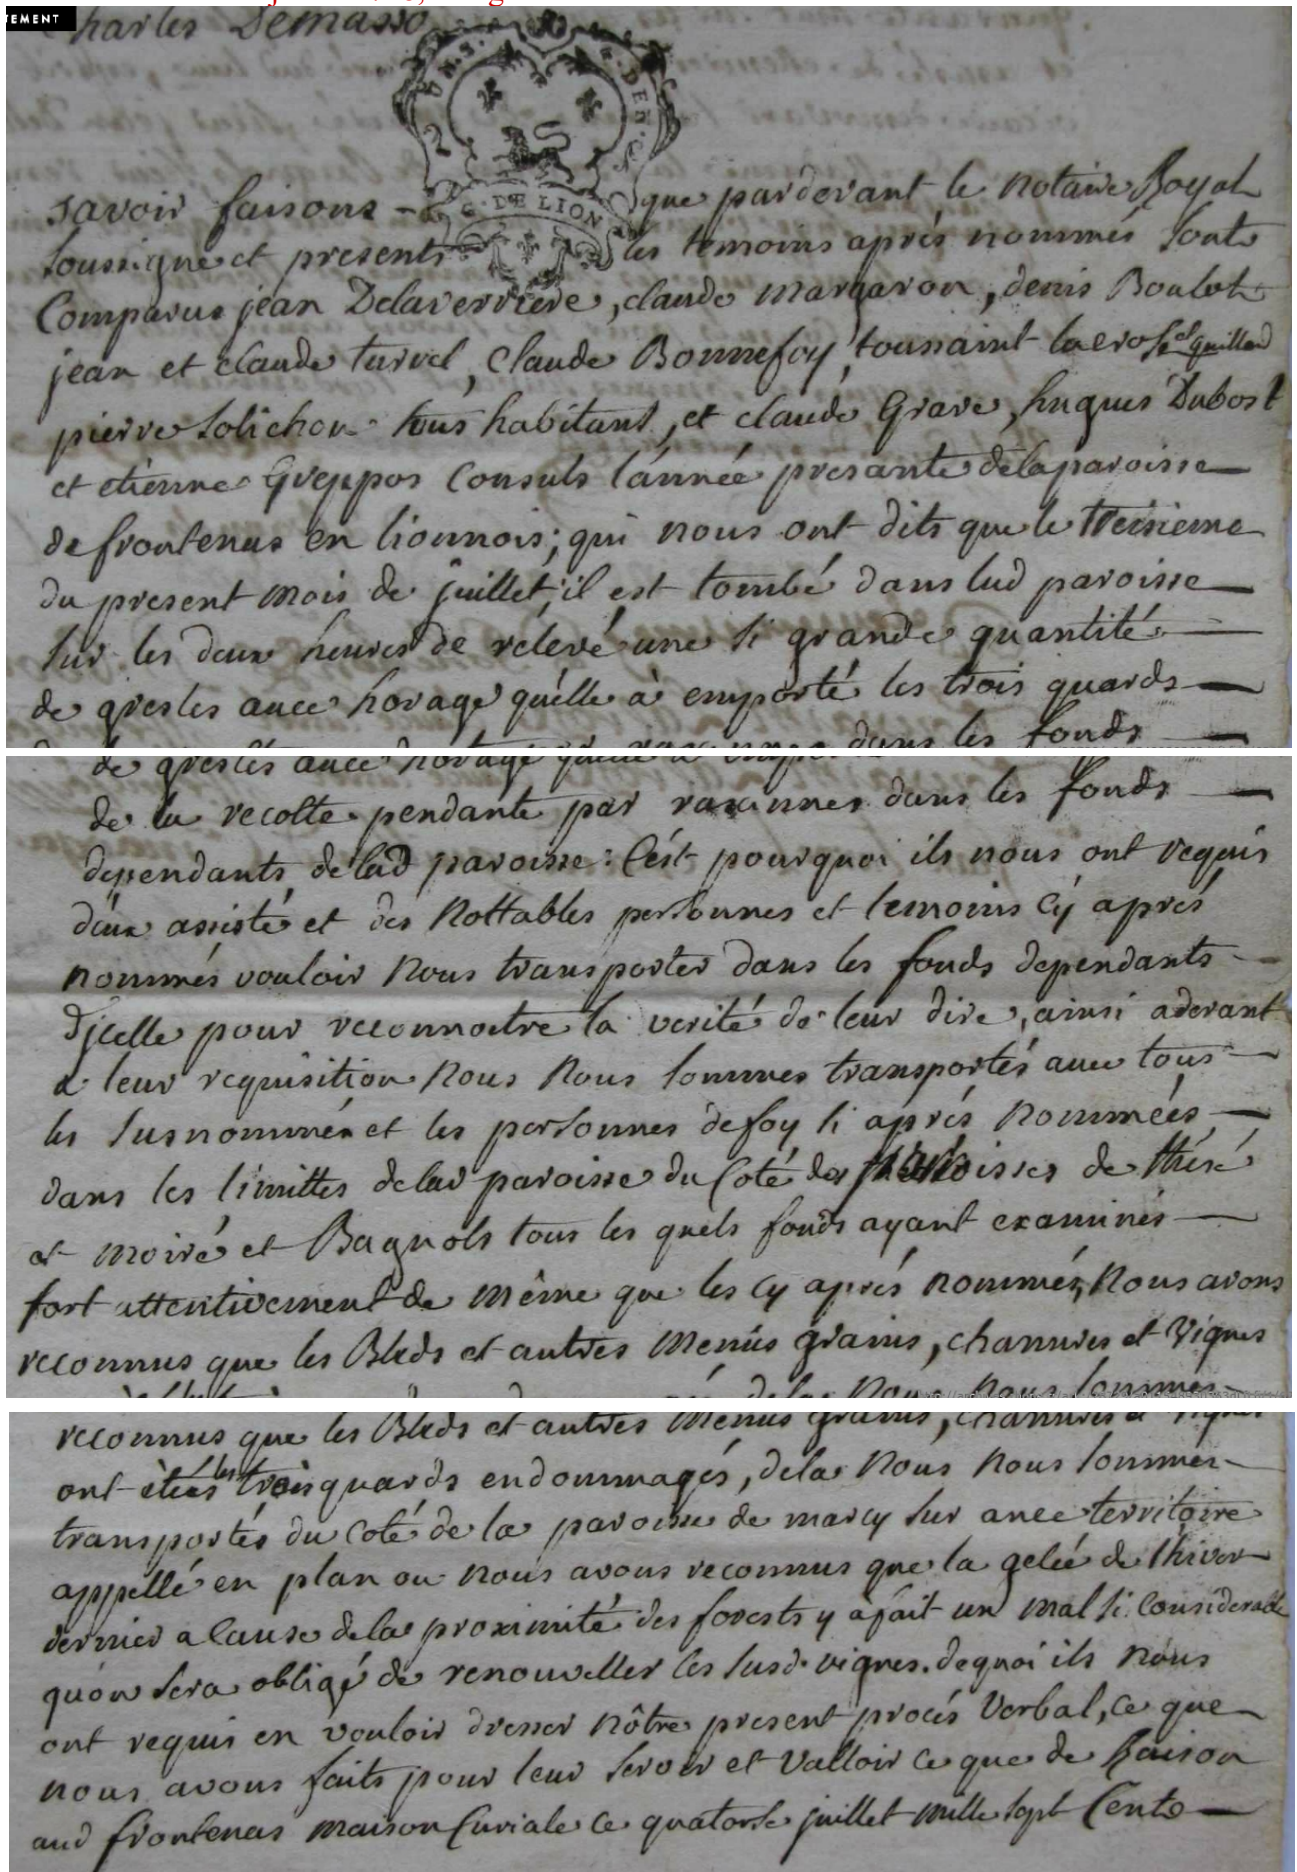 TEMENT
Charles Demasso
G. DE LION
savoir faisons que pardevant le notaire Royal
soussigné et presents les temoins aprés nommés sont
Comparus jean Delaverriere, claude margaron, denis Boulot
jean et claude turvel, Claude Bonnefoy, toussaint lacrose guillard
pierre Solichon tous habitant, et claude Grave, hugues Dubost
et etienne Greppos Consuls l'année presante de la paroisse
de frontenas en lionnois; qui nous ont dits que le treisieme
du present mois de juillet, il est tombé dans lad paroisse
sur les deux heures de relevé une si grande quantité
de gresles avec horage qu'elle à emporté les trois quards
de la recolte pendante par raxinnes dans les fonds
dependants de lad paroisse: C'est pourquoi ils nous ont requis
d'eux assisté et des Nottables personnes et temoins cy aprés
nommés vouloir Nous transporter dans les fonds dependants
d'jcelle pour reconnoetre la verité de leur dire, ainsi aderant
a leur requisition Nous Nous sommes transportés avec tous
les susnommés et les personnes de foy si aprés Nommées
dans les limittes de lad paroisse du Coté des paroisses de thésé
et moiré et Bagnols tous les quels fonds ayant examinés
fort attentivement de même que les cy aprés nommés, Nous avons
reconnus que les Bleds et autres Menus grains, chanvres et Vignes
ont étées les trois quards endommagés, de la Nous Nous sommes
transportés du coté de la paroisse de marcy sur ance territoire
appellé en plan ou nous avons reconnus que la gelée de l'hiver
dernier a cause de la proximité des forests y a fait un mal si considerable
qu'on sera obligé de renouveller les susd. vignes. de quoi ils nous
ont requis en vouloir dresser nôtre present procés Verbal, ce que
nous avons faits pour leur servir et Valloir ce que de Raison
aud frontenas maison Curiale ce quatorse juillet mille sept Cents